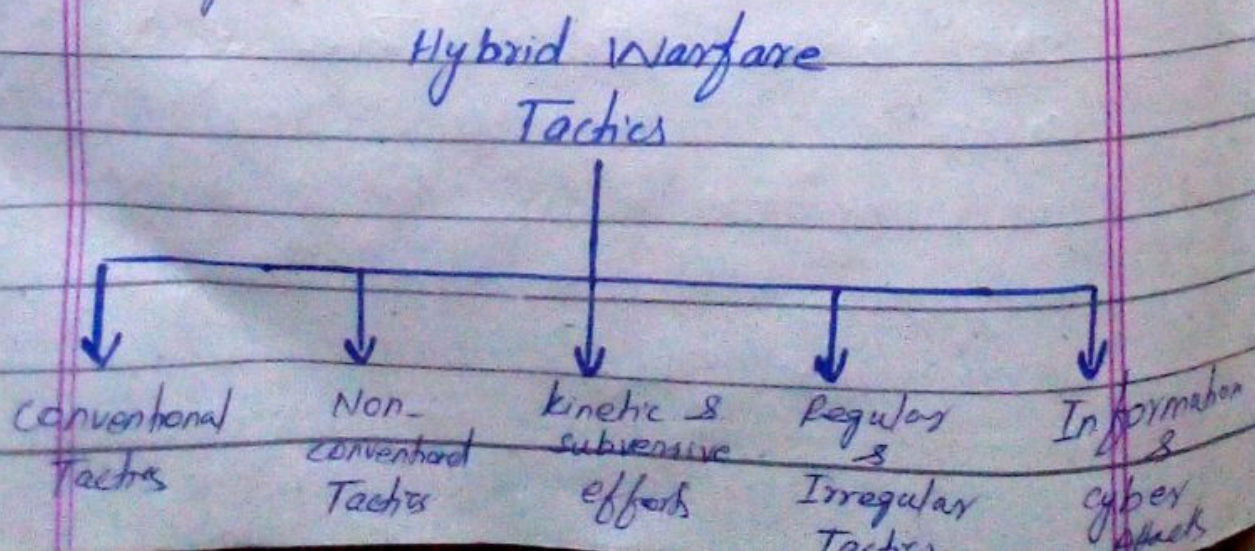 Hybrid Warfare
Tactics
Conventional
Tactics
Non-
conventional
Tactics
kinetic &
subversive
efforts
Regular
&
Irregular
Tactics
Information
&
cyber
attacks